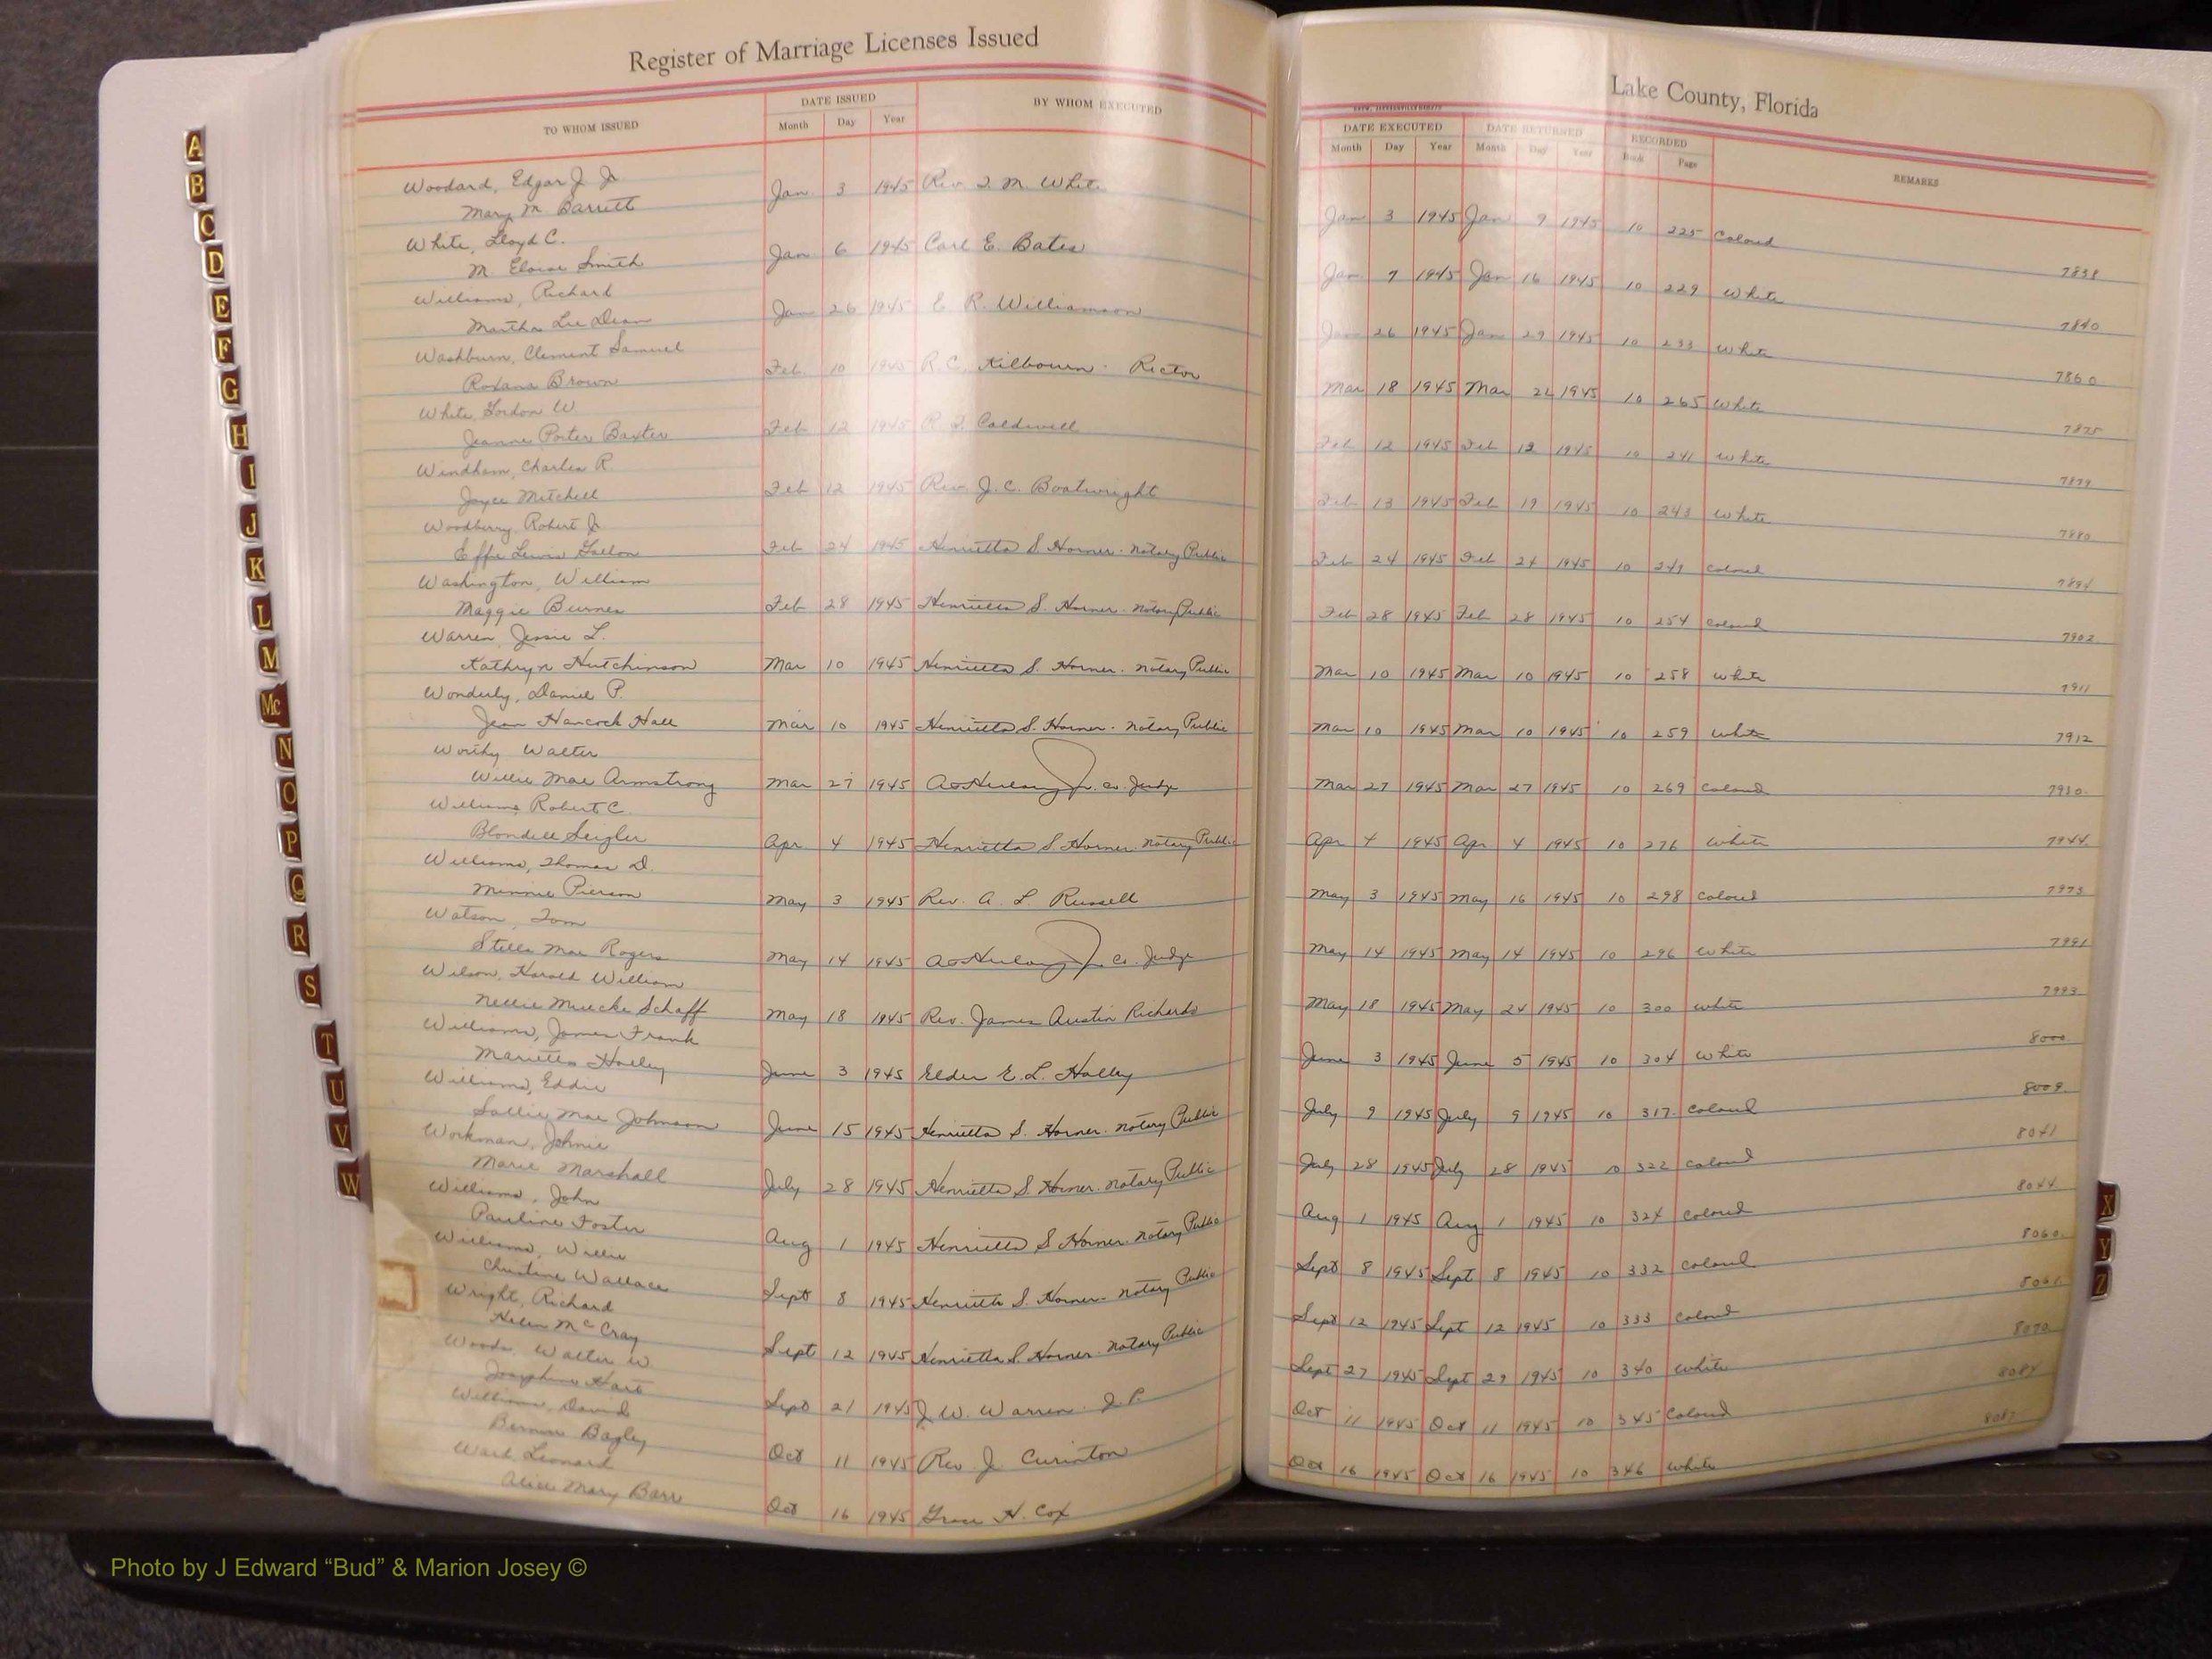 Register of Marriage Licenses Issued
TO WHOM ISSUED DATE ISSUED BY WHOM EXECUTED
Month Day Year
Woodard, Edgar J. Jr
Mary M. Barrett Jan 3 1945 Rev. I. M. White
White, Lloyd C.
M. Eloise Smith Jan 6 1945 Carl E. Bates
Williams, Richard
Martha Lee Dean Jan 26 1945 E. R. Williamson
Washburn, Clement Samuel
Roxana Brown Feb. 10 1945 R. C. Kilbourn - Rector
White, Gordon W.
Jeanne Porter Baxter Feb 12 1945 R. I. Caldwell
Windham, Charles R.
Joyce Mitchell Feb 12 1945 Rev. J. C. Boatwright
Woodberry, Robert Jr.
Effie Lewis Feb 24 1945 Henrietta S. Horner - Notary Public
Washington, William
Maggie Burnes Feb 28 1945 Henrietta S. Horner - Notary Public
Warren, Jessie L.
Kathryn Hutchinson Mar 10 1945 Henrietta S. Horner - Notary Public
Wonderly, Daniel P.
Jean Hancock Hall Mar 10 1945 Henrietta S. Horner - Notary Public
Worthy Walter
Willie Mae Armstrong Mar 27 1945 Jr. Co. Judge
Williams Robert C.
Blondell Seigler Apr. 4 1945 Henrietta S. Horner - Notary Public
Williams, Thomas D.
Minnie Pierson May 3 1945 Rev. A. L. Russell
Watson, Tom
Stella Mae Rogers May 14 1945 Jr. Co. Judge
Wilson, Harold William
Nellie Muecke Schaff May 18 1945 Rev. James Austin Richards
Williams, James Frank
Marietta Holley June 3 1945 Elder E. L. Holley
Williams, Eddie
Sallie Mae Johnson June 15 1945 Henrietta S. Horner - Notary Public
Workman, Johnie
Marie Marshall July 28 1945 Henrietta S. Horner - Notary Public
Williams, John
Pauline Foster Aug 1 1945 Henrietta S. Horner - Notary Public
Williams, Willie
Christine Wallace Sept 8 1945 Henrietta S. Horner - Notary Public
Wright, Richard
Helen McCray Sept 12 1945 Henrietta S. Horner - Notary Public
Woods, Walter W
Josephine Hart Sept 21 1945 J. W. Warren - J. P.
Williams, David
Bagley Oct 11 1945 Rev. J. Curinton
Ward, Leonard
Alice Mary Barr Oct 16 1945 Grace H. Cox
Lake County, Florida
DATE EXECUTED DATE RETURNED RECORDED REMARKS
Month Day Year Month Day Year Book Page
Jan 3 1945 Jan 9 1945 10 225 Colored 7838
Jan 7 1945 Jan 16 1945 10 229 White 7840
Jan 26 1945 Jan 29 1945 10 233 White 7860
Mar 18 1945 Mar 22 1945 10 265 White 7875
Feb 12 1945 Feb 12 1945 10 241 White 7879
Feb 13 1945 Feb 19 1945 10 243 White 7880
Feb 24 1945 Feb 24 1945 10 249 Colored 7894
Feb 28 1945 Feb 28 1945 10 254 Colored 7902
Mar 10 1945 Mar 10 1945 10 258 White 7911
Mar 10 1945 Mar 10 1945 10 259 White 7912
Mar 27 1945 Mar 27 1945 10 269 Colored 7930
Apr 4 1945 Apr 4 1945 10 276 White 7944
May 3 1945 May 16 1945 10 298 Colored 7973
May 14 1945 May 14 1945 10 296 White 7991
May 18 1945 May 24 1945 10 300 White 7993
June 3 1945 June 5 1945 10 304 White 8000
July 9 1945 July 9 1945 10 317 Colored 8009
July 28 1945 July 28 1945 10 322 Colored 8041
Aug 1 1945 Aug 1 1945 10 324 Colored 8044
Sept 8 1945 Sept 8 1945 10 332 Colored 8060
Sept 12 1945 Sept 12 1945 10 333 Colored 8061
Sept 27 1945 Sept 29 1945 10 340 White 8070
Oct 11 1945 Oct 11 1945 10 345 Colored 8084
Oct 16 1945 Oct 16 1945 10 346 White 8087
A
B
C
D
E
F
G
H
I
J
K
L
M
Mc
N
O
P
Q
R
S
T
U
V
W
X
Y
Z
Photo by J Edward “Bud” & Marion Josey ©